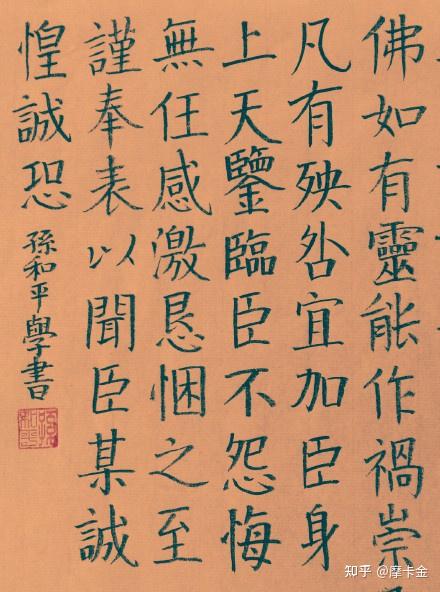 佛如有靈能作禍崇
凡有殃咎宜加臣身
上天鑒臨臣不怨悔
無任感激恳悃之至
謹奉表以聞臣某誠
惶誠恐
孫和平學書
知乎 @摩卡金